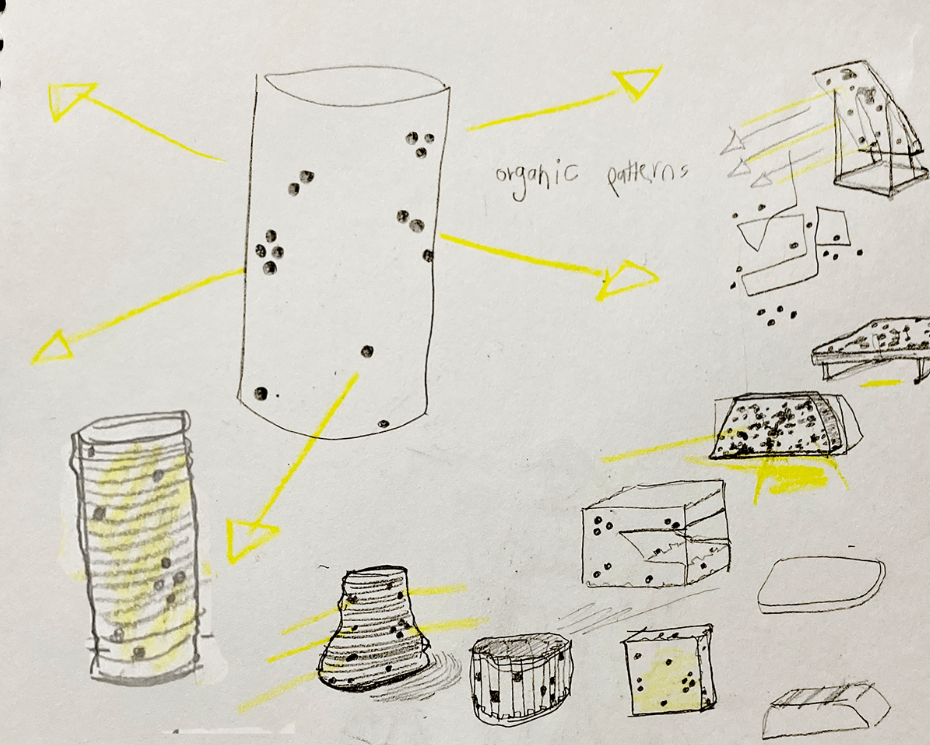 organic patterns